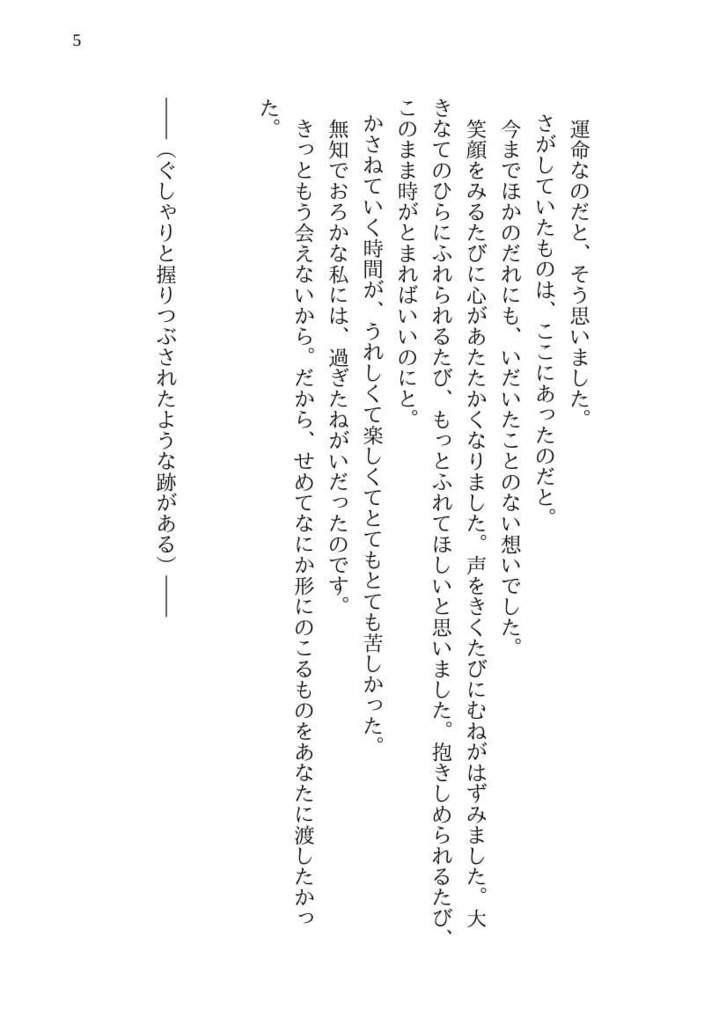 5
運命なのだと、そう思いました。
さがしていたものは、ここにあったのだと。
今までほかのだれにも、いだいたことのない想いでした。
笑顔をみるたびに心があたたかくなりました。声をきくたびにむねがはずみました。大
きなてのひらにふれられるたび、もっとふれてほしいと思いました。抱きしめられるたび、
このまま時がとまればいいのにと。
かさねていく時間が、うれしくて楽しくてとてもとても苦しかった。
無知でおろかな私には、過ぎたねがいだったのです。
きっともう会えないから。だから、せめてなにか形にのこるものをあなたに渡したかっ
た。
――（ぐしゃりと握りつぶされたような跡がある）――